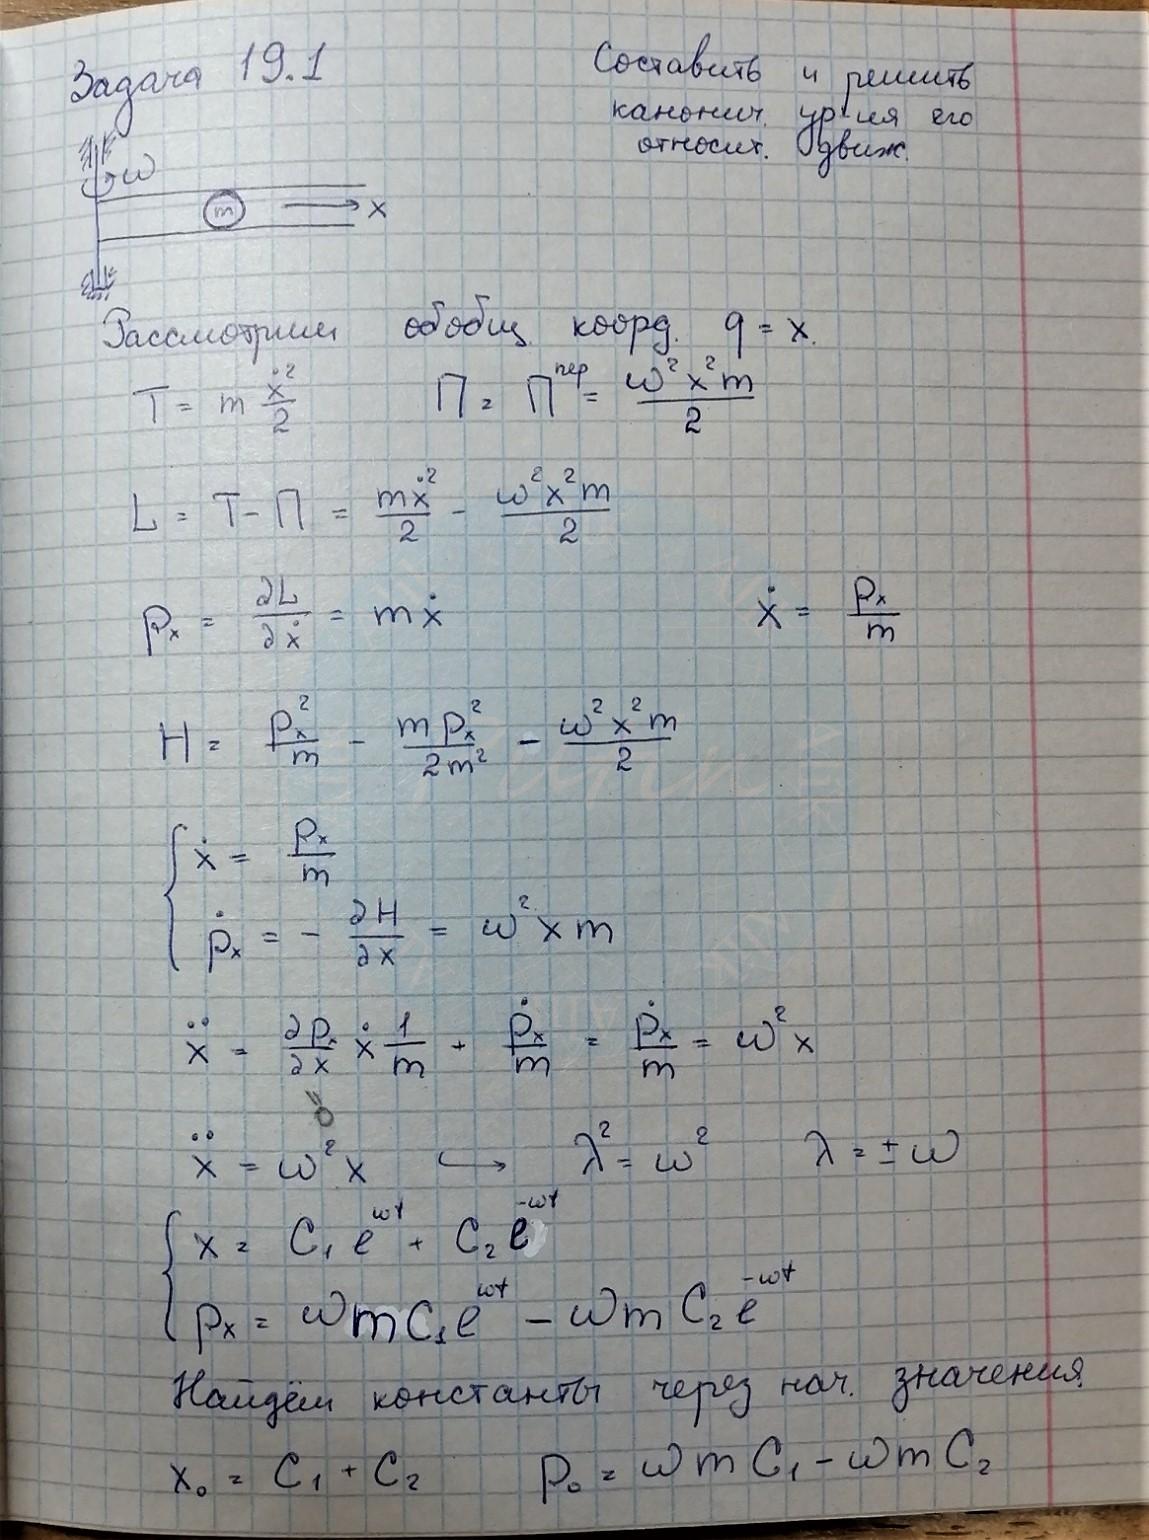 Задача 19.1
Составить и решить
канонич. ур-ия его
относит. движ.
ω
m
x
Рассмотрим обобщ. коорд. q = x.
T = m ẋ²/2    П = П^пер = ω²x²m/2
L = T - П = mẋ²/2 - ω²x²m/2
pₓ = ∂L/∂ẋ = mẋ    ẋ = pₓ/m
H = pₓ²/m - m pₓ²/2m² - ω²x²m/2
{ ẋ = pₓ/m
ṗₓ = - ∂H/∂x = ω² x m
ẍ = ∂pₓ/∂x ẋ 1/m + ṗₓ/m = ṗₓ/m = ω² x
0
ẍ = ω² x ↪ λ² = ω²    λ = ± ω
{ x = C₁ e^ωt + C₂ e^-ωt
pₓ = ωmC₁e^ωt - ωmC₂e^-ωt
Найдём константы через нач. значения.
x₀ = C₁ + C₂    p₀ = ωmC₁ - ωmC₂